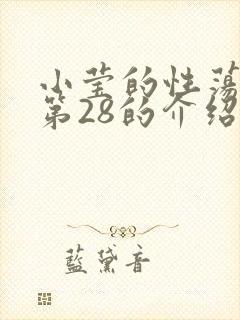 小莹的性荡
第28的介绍
藍黛音